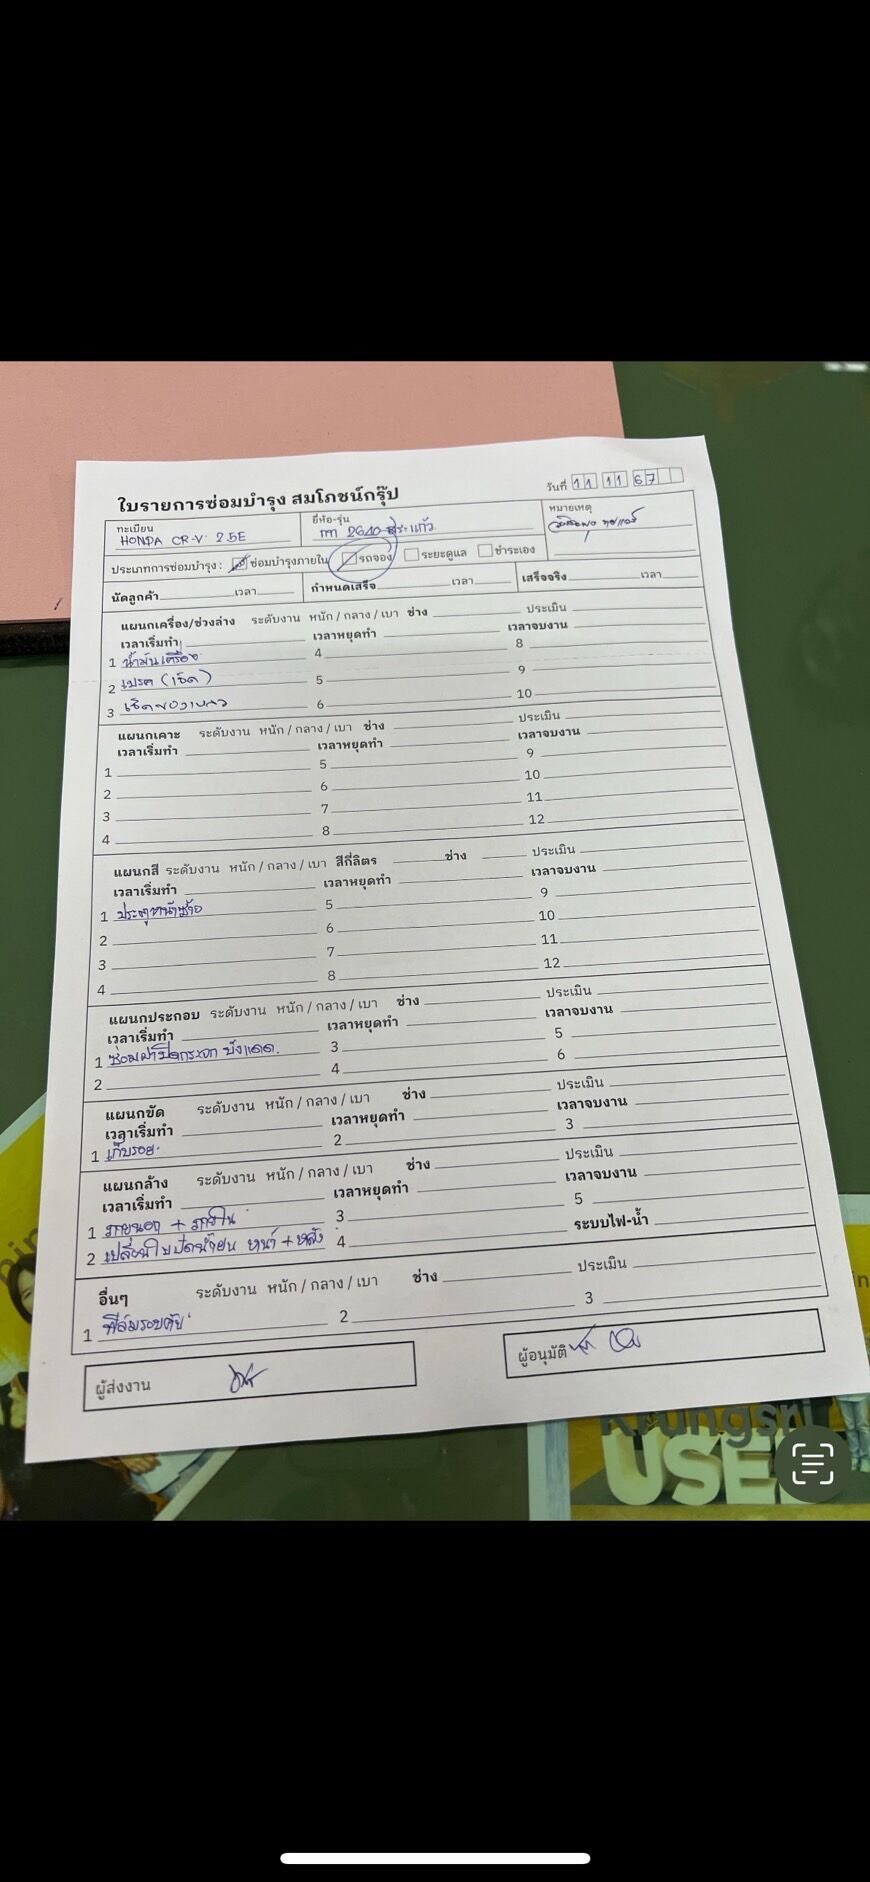 ใบรายการซ่อมบำรุง สมโภชน์กรุ๊ป
วันที่ 11 11 67
ทะเบียน HONDA CR-V 2.5E
ยี่ห้อ-รุ่น กท 2640 สระแก้ว
หมายเหตุ
ประเภทการซ่อมบำรุง : ซ่อมบำรุงภายใน รถจอง ระยะดูแล ชำระเอง
นัดลูกค้า เวลา กำหนดเสร็จ เวลา เสร็จจริง เวลา
แผนกเครื่อง/ช่วงล่าง ระดับงาน หนัก / กลาง / เบา ช่าง ประเมิน
เวลาเริ่มทำ เวลาหยุดทำ เวลาจบงาน
1 น้ำมันเครื่อง 4 8
2 เบรค (เช็ค) 5 9
3 เช็คของเหลว 6 10
แผนกเคาะ ระดับงาน หนัก / กลาง / เบา ช่าง ประเมิน
เวลาเริ่มทำ เวลาหยุดทำ เวลาจบงาน
1 5 9
2 6 10
3 7 11
4 8 12
แผนกสี ระดับงาน หนัก / กลาง / เบา สีกี่ลิตร ช่าง ประเมิน
เวลาเริ่มทำ เวลาหยุดทำ เวลาจบงาน
1 ประตูหน้าซ้าย 5 9
2 6 10
3 7 11
4 8 12
แผนกประกอบ ระดับงาน หนัก / กลาง / เบา ช่าง ประเมิน
เวลาเริ่มทำ เวลาหยุดทำ เวลาจบงาน
1 ซ่อมฝาปิดกระจก บังแดด 3 5
2 4 6
แผนกขัด ระดับงาน หนัก / กลาง / เบา ช่าง ประเมิน
เวลาเริ่มทำ เวลาหยุดทำ เวลาจบงาน
1 เก็บรอย 2 3
แผนกล้าง ระดับงาน หนัก / กลาง / เบา ช่าง ประเมิน
เวลาเริ่มทำ เวลาหยุดทำ เวลาจบงาน
1 ภายนอก + ภายใน 3 5
2 เปลี่ยนใบปัดน้ำฝน หน้า + หลัง 4 ระบบไฟ-น้ำ
อื่นๆ ระดับงาน หนัก / กลาง / เบา ช่าง ประเมิน
1 ฟิล์มรอบคัน 2 3
ผู้ส่งงาน
ผู้อนุมัติ
Krungsri
USE